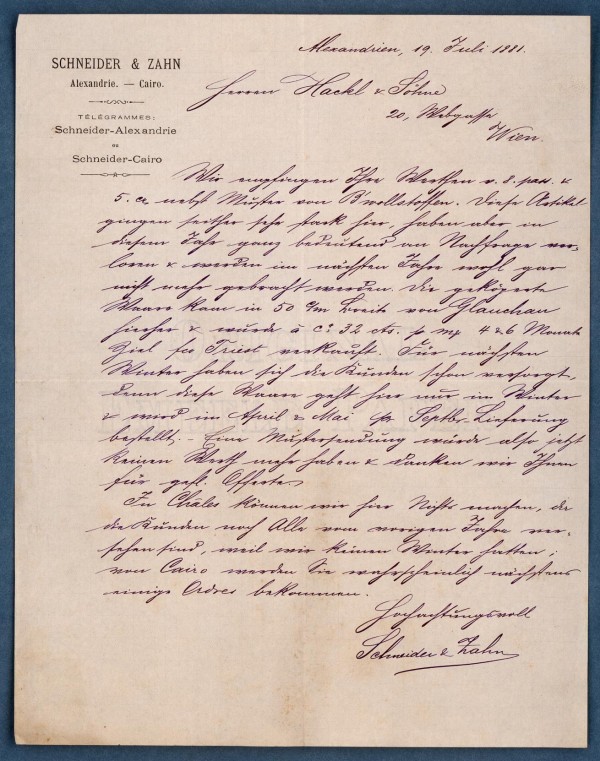 Alexandrien, 19. Juli 1881.
SCHNEIDER & ZAHN
Alexandrie. — Cairo.
TÉLÉGRAMMES:
Schneider-Alexandrie
ou
Schneider-Cairo
Herren Hackl & Söhne
20, Webgasse
Wien.
Wir empfingen Ihre Werthen v. 8. pass. &
5. ct nebst Muster von Bwollstoffen. Diese Artikel
gingen seither sehr stark hier, haben aber in
diesem Jahr ganz bedeutend an Nachfrage ver-
loren & werden im nächsten Jahre wohl gar
nicht mehr gebraucht werden. Die geköperte
Waare kam in 50 c/m Breite von Glauchau
hierher & wurde à cs 32 cts. p mx 4 & 6 Monate
Ziel fco Triest verkauft. Für nächsten
Winter haben sich die Kunden schon versorgt,
denn diese Waare geht hier nur im Winter
& wird im April & Mai pr Septbr-Lieferung
bestellt. - Eine Mustersendung würde also jetzt
keinen Werth mehr haben & danken wir Ihnen
für gefl. Offerte.
In Châles können wir hier Nichts machen, da
die Kunden noch Alle vom vorigen Jahre ver-
sehen sind, weil wir keinen Winter hatten;
von Cairo werden Sie wahrscheinlich nächstens
einige Ordres bekommen.
Hochachtungsvoll
Schneider & Zahn